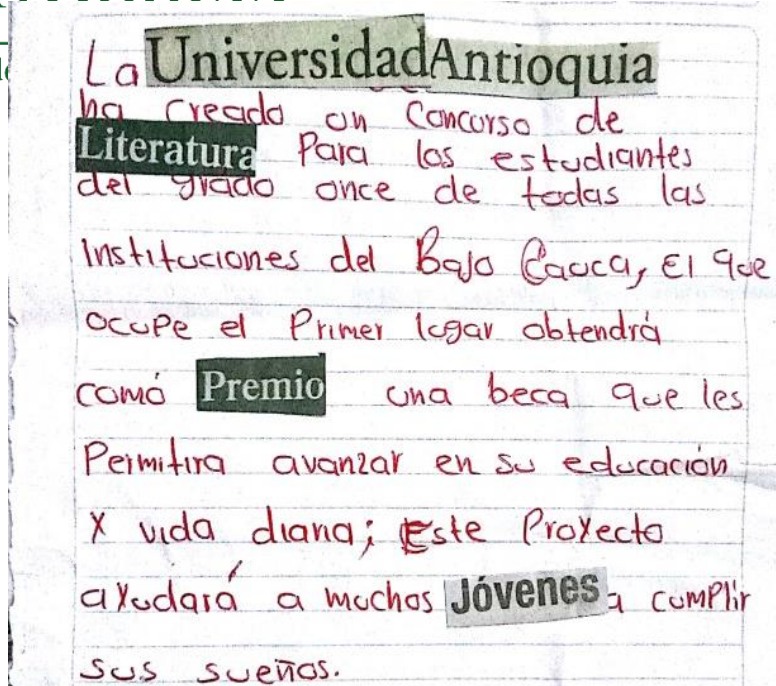 La Universidad Antioquia
ha creado un Concurso de
Literatura Para los estudiantes
del grado once de todas las
Instituciones del Bajo Cauca, El que
ocupe el Primer lugar obtendrá
comó Premio una beca que les
Permitira avanzar en su educación
y vida diaria; Este Proyecto
ayudará a muchos Jóvenes a cumplir
sus sueños.